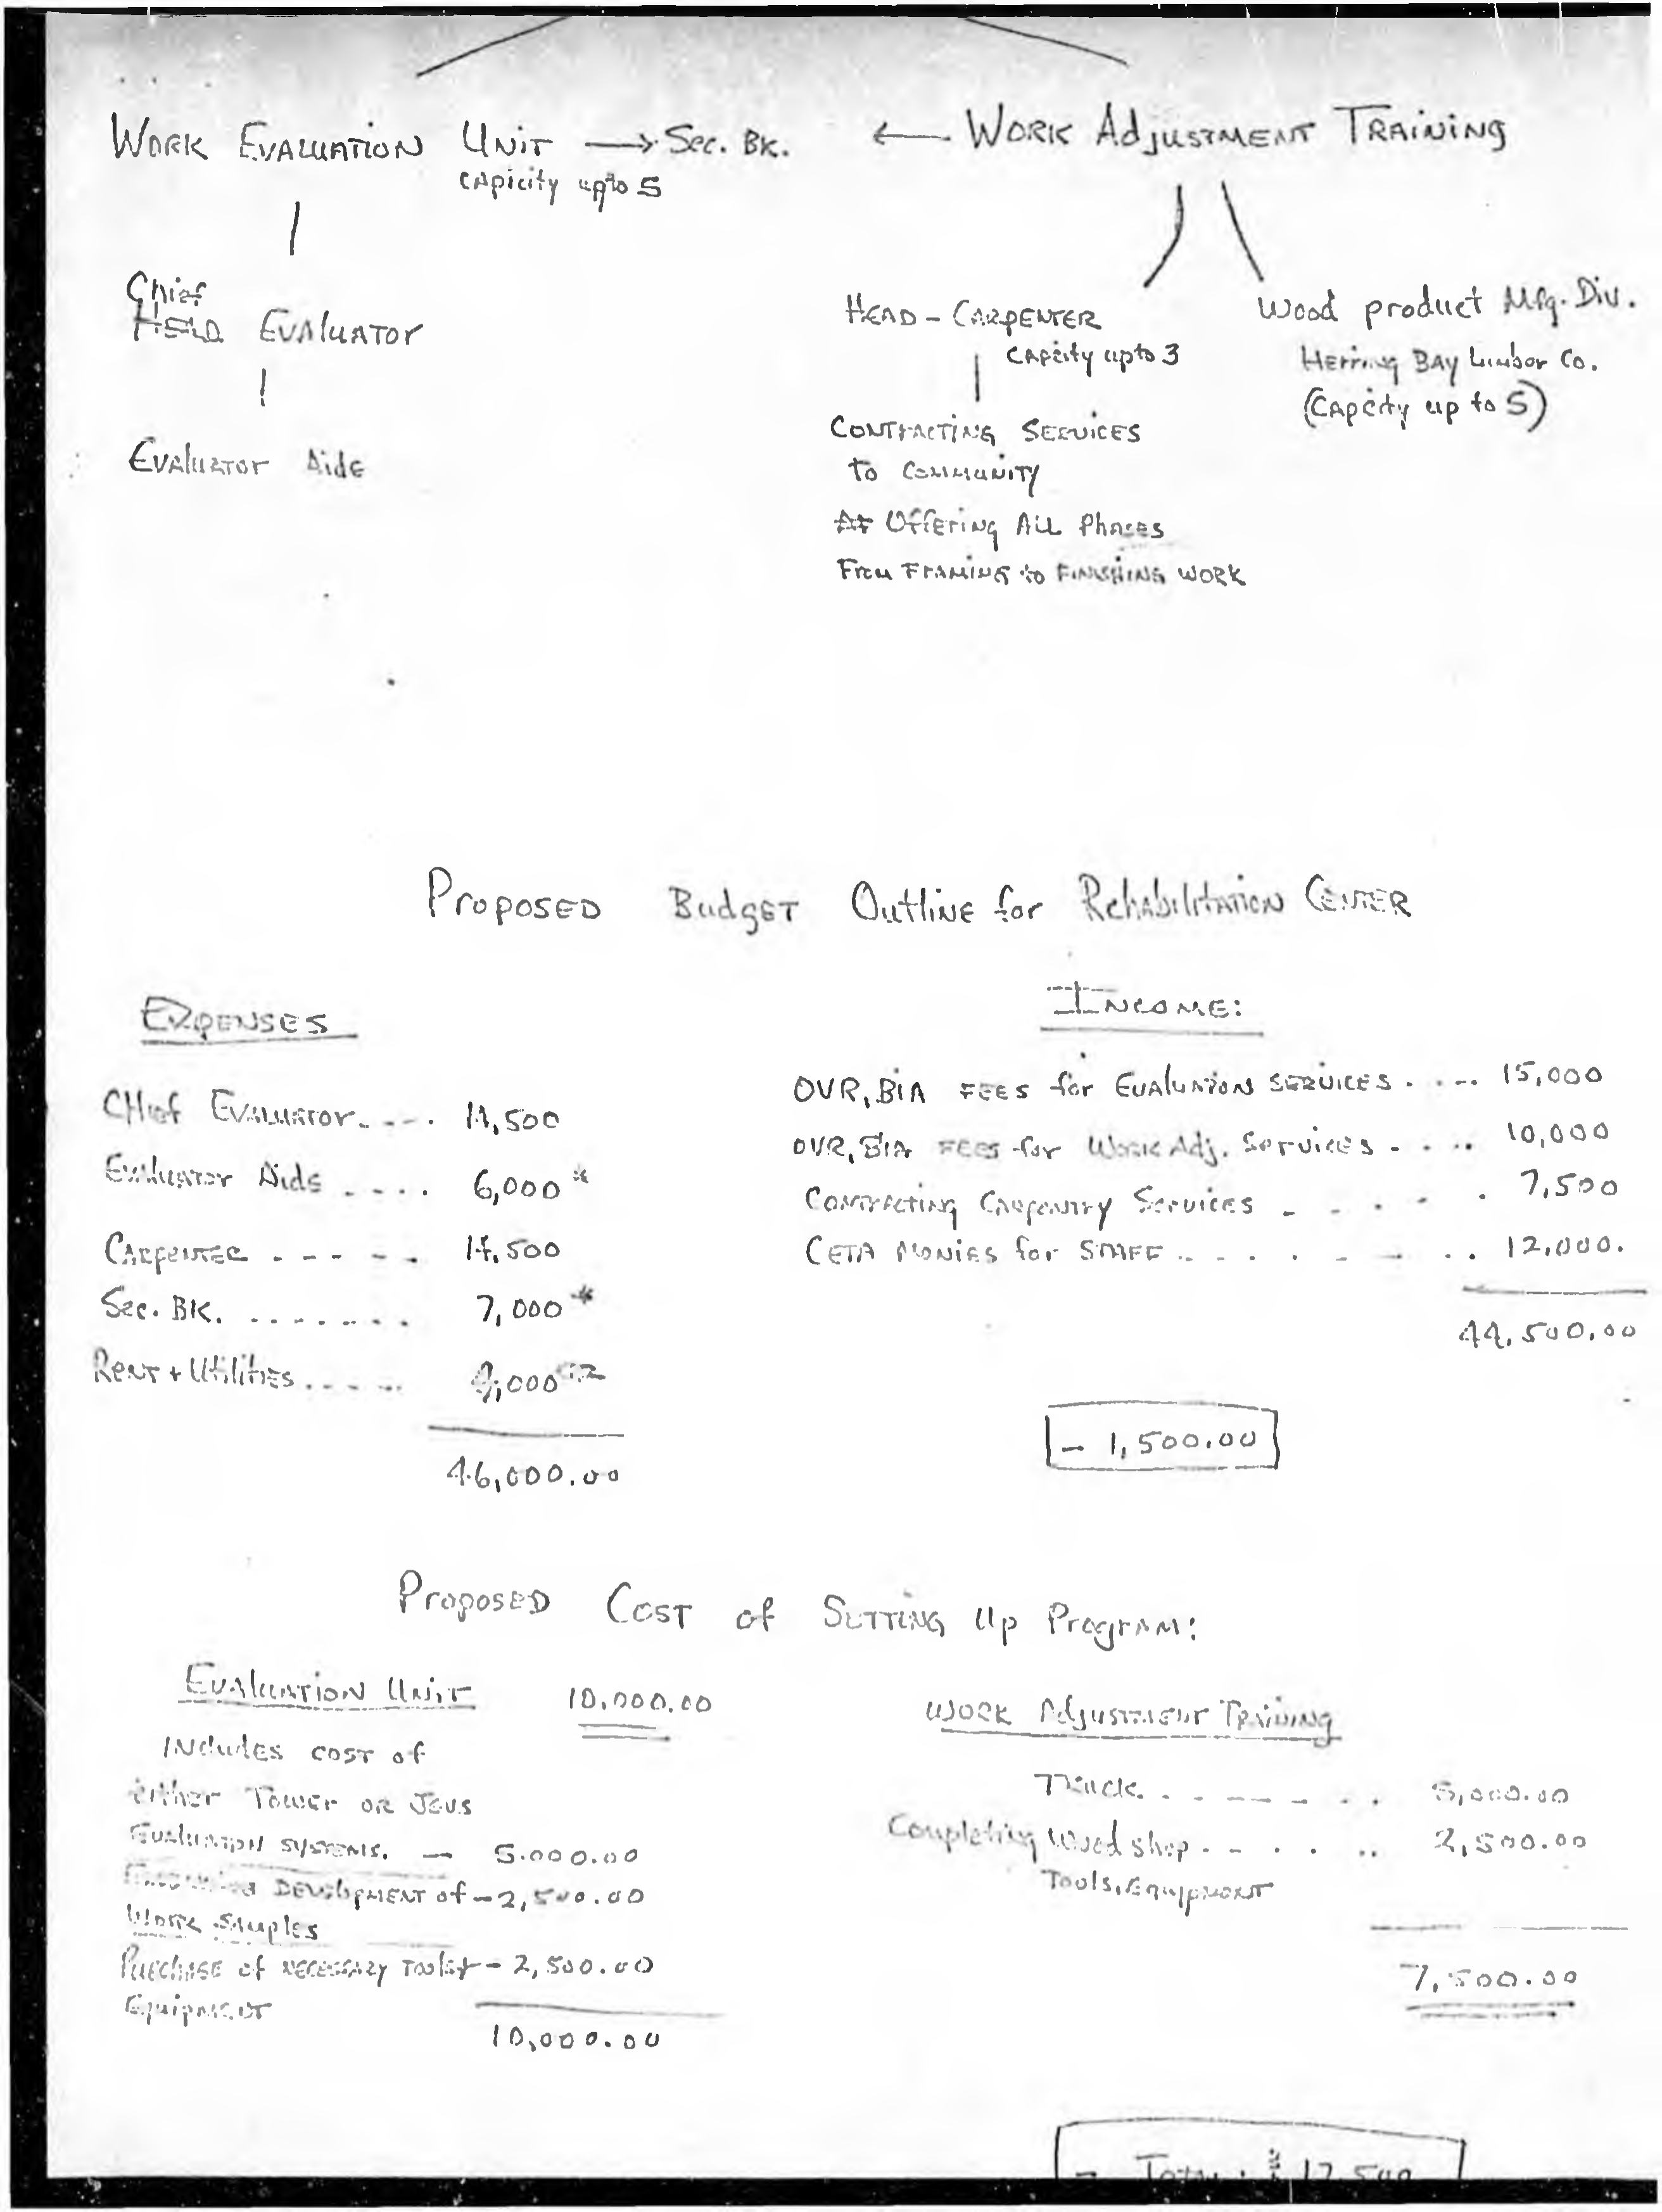 WORK EVALUATION UNIT → Sec. BK. ← WORK AdJUSTMENT TRAINING
CApicity upto 5
Chief
HEAD EVALUATOR
Evaluator Aide
HEAD - CARPENTER
CApcity upto 3
CONTRACTING SERVICES
to COMMUNITY
Offering All Phases
From FRAMING to FINISHING WORK
Wood product Mfg. Div.
HErring BAY Lumber Co.
(CApcity up to 5)
PROPOSED BudgET OutliNE for REhAbilitATION CENTER
EXPENSES
CHief EVALUATOR - - - . 14,500
Evaluator Aids . - - . 6,000*
CARPENTER - - - - - 14,500
Sec. BK. . . . . . . . 7,000*
RENT + Utilities . . - - . 4,000
46,000.00
INCOME:
OVR, BIA FEES for EvaluATION SERVICES . . -- 15,000
OVR, BIA FEES for WORK Adj. Services - . . . 10,000
CONTRACTING CArpentry Services - - - - . 7,500
CETA MONIES for STAFF . . - - - . . 12,000.
44,500.00
- 1,500.00
PROPOSED COST of SETTING Up ProgrAM:
EVALUATION UNIT 10,000.00
INcludes COST of
either Tower OR Jevs
EvaluATION SYSTEMS. - 5.000.00
DEVElopMENT of - 2,500.00
WORK SAMples
PURCHASE of NECESSARY Tools + - 2,500.00
EquipMENT
10,000.00
WORK AdjustmENT TRAINING
TRuck . - - - - . . 5,000.00
Completing Wood shop - - . . . 2,500.00
Tools, EquipmENT
7,500.00
- Total: $ 17,500